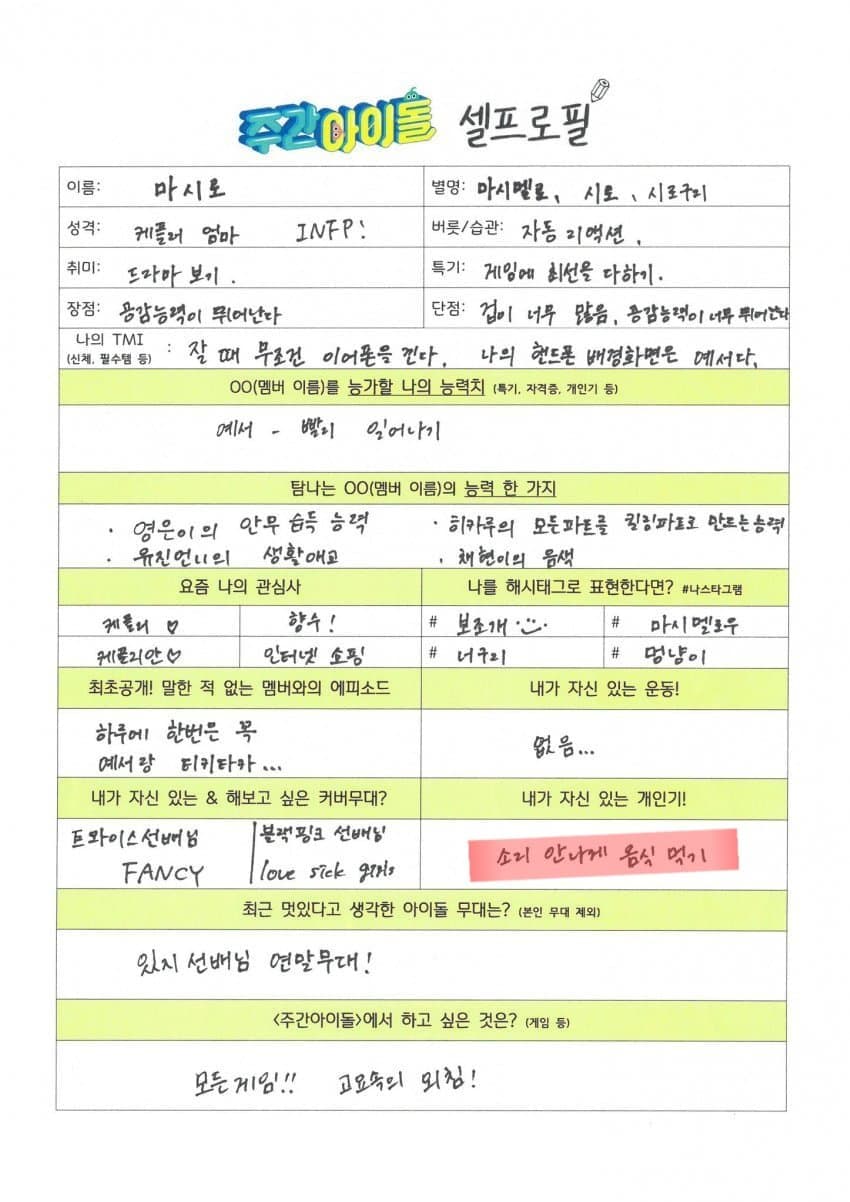 주간아이돌 셀프로필
이름: 마시로 별명: 마시멜로, 시로, 시로구리
성격: 케플러 엄마 INFP! 버릇/습관: 자동 리액션.
취미: 드라마 보기. 특기: 게임에 최선을 다하기.
장점: 공감능력이 뛰어난다 단점: 겁이 너무 많음, 공감능력이 너무 뛰어난다
나의 TMI
(신체, 필수템 등) : 잘 때 무조건 이어폰을 낀다. 나의 핸드폰 배경화면은 예서다.
OO(멤버 이름)를 능가할 나의 능력치 (특기, 자격증, 개인기 등)
예서 - 빨리 일어나기
탐나는 OO(멤버 이름)의 능력 한 가지
· 영은이의 안무 습득 능력 · 히카루의 모든파트를 킬링파트로 만드는능력
· 유진언니의 생활애교 · 채현이의 음색
요즘 나의 관심사 나를 해시태그로 표현한다면? #나스타그램
케플러 ♡ 향수! # 보조개 # 마시멜로우
케플리안♡ 인터넷 쇼핑 # 너구리 # 멍냥이
최초공개! 말한 적 없는 멤버와의 에피소드 내가 자신 있는 운동!
하루에 한번은 꼭
예서랑 티키타카... 없음...
내가 자신 있는 & 해보고 싶은 커버무대? 내가 자신 있는 개인기!
트와이스선배님 블랙핑크 선배님
FANCY love sick girls
소리 안나게 음식 먹기
최근 멋있다고 생각한 아이돌 무대는? (본인 무대 제외)
있지 선배님 연말무대!
<주간아이돌>에서 하고 싶은 것은? (게임 등)
모든게임!! 고요속의 외침!